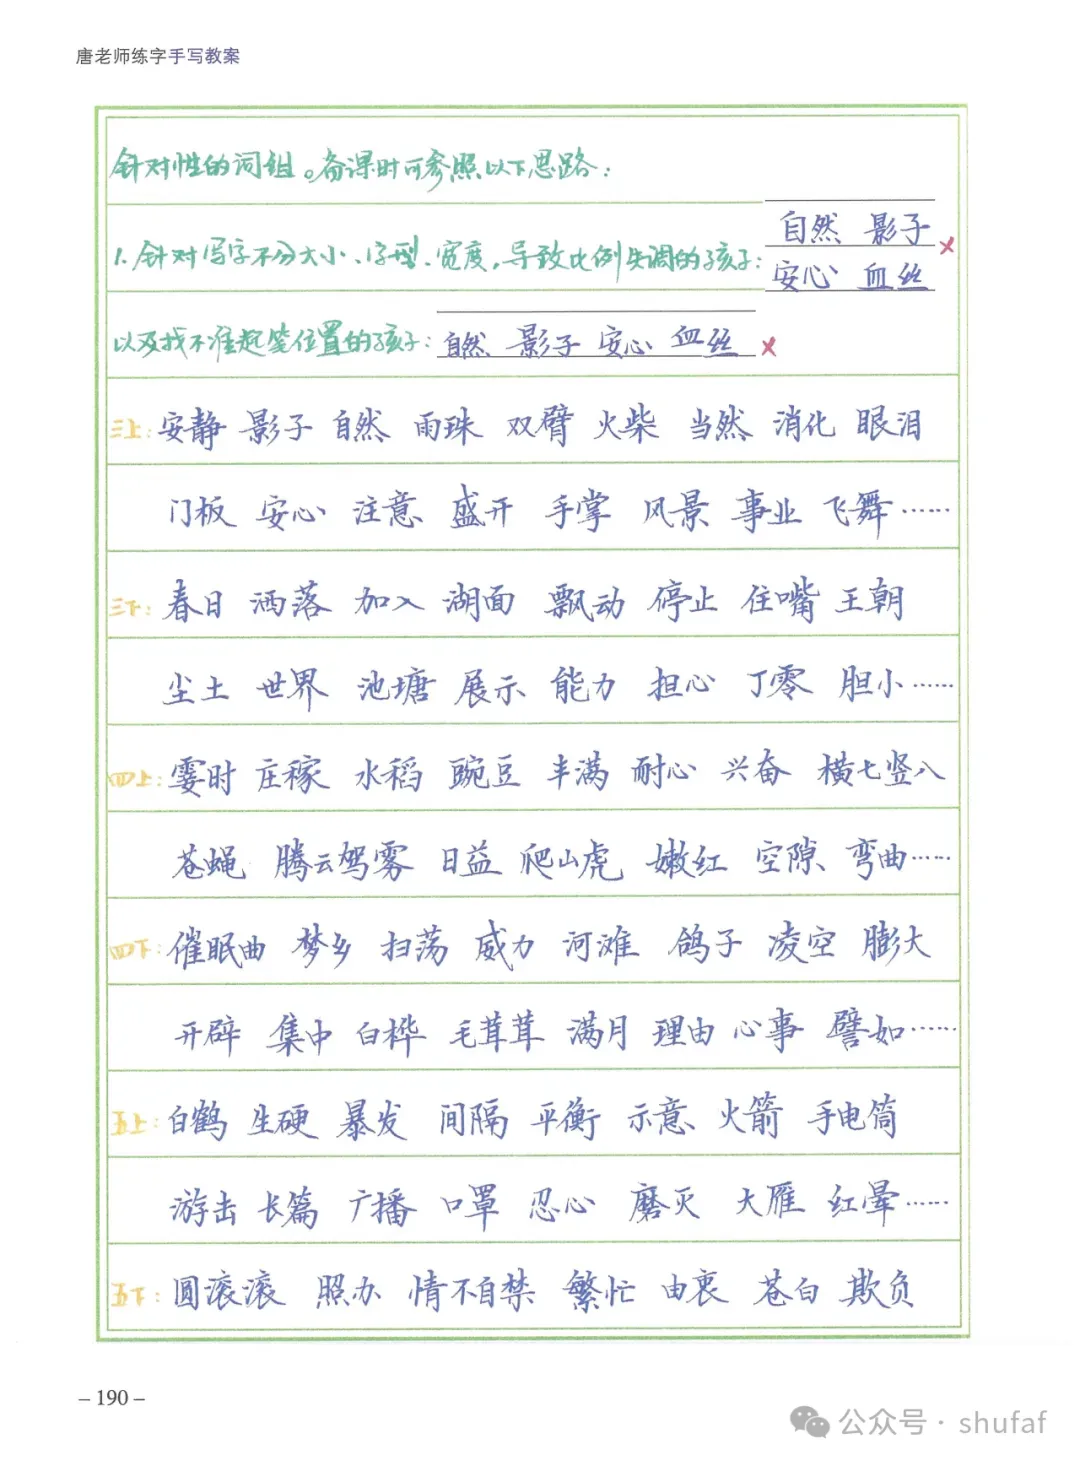 唐老师练字手写教案
针对性的词组。备课时可参照以下思路：
自然 影子
1.针对写字不分大小、字型、宽度，导致比例失调的孩子：
安心 血丝
以及找不准起笔位置的孩子：自然 影子 安心 血丝
三上：安静 影子 自然 雨珠 双臂 火柴 当然 消化 眼泪
门板 安心 注意 盛开 手掌 风景 事业 飞舞……
三下：春日 洒落 加入 湖面 飘动 停止 住嘴 王朝
尘土 世界 池塘 展示 能力 担心 丁零 胆小……
四上：霎时 庄稼 水稻 豌豆 丰满 耐心 兴奋 横七竖八
苍蝇 腾云驾雾 日益 爬山虎 嫩红 空隙 弯曲……
四下：催眠曲 梦乡 扫荡 威力 河滩 鸽子 凌空 膨大
开辟 集中 白桦 毛茸茸 满月 理由 心事 譬如……
五上：白鹤 生硬 暴发 间隔 平衡 示意 火箭 手电筒
游击 长篇 广播 口罩 忍心 磨灭 大雁 红晕……
五下：圆滚滚 照办 情不自禁 繁忙 由衷 苍白 欺负
– 190 –
公众号 · shufaf